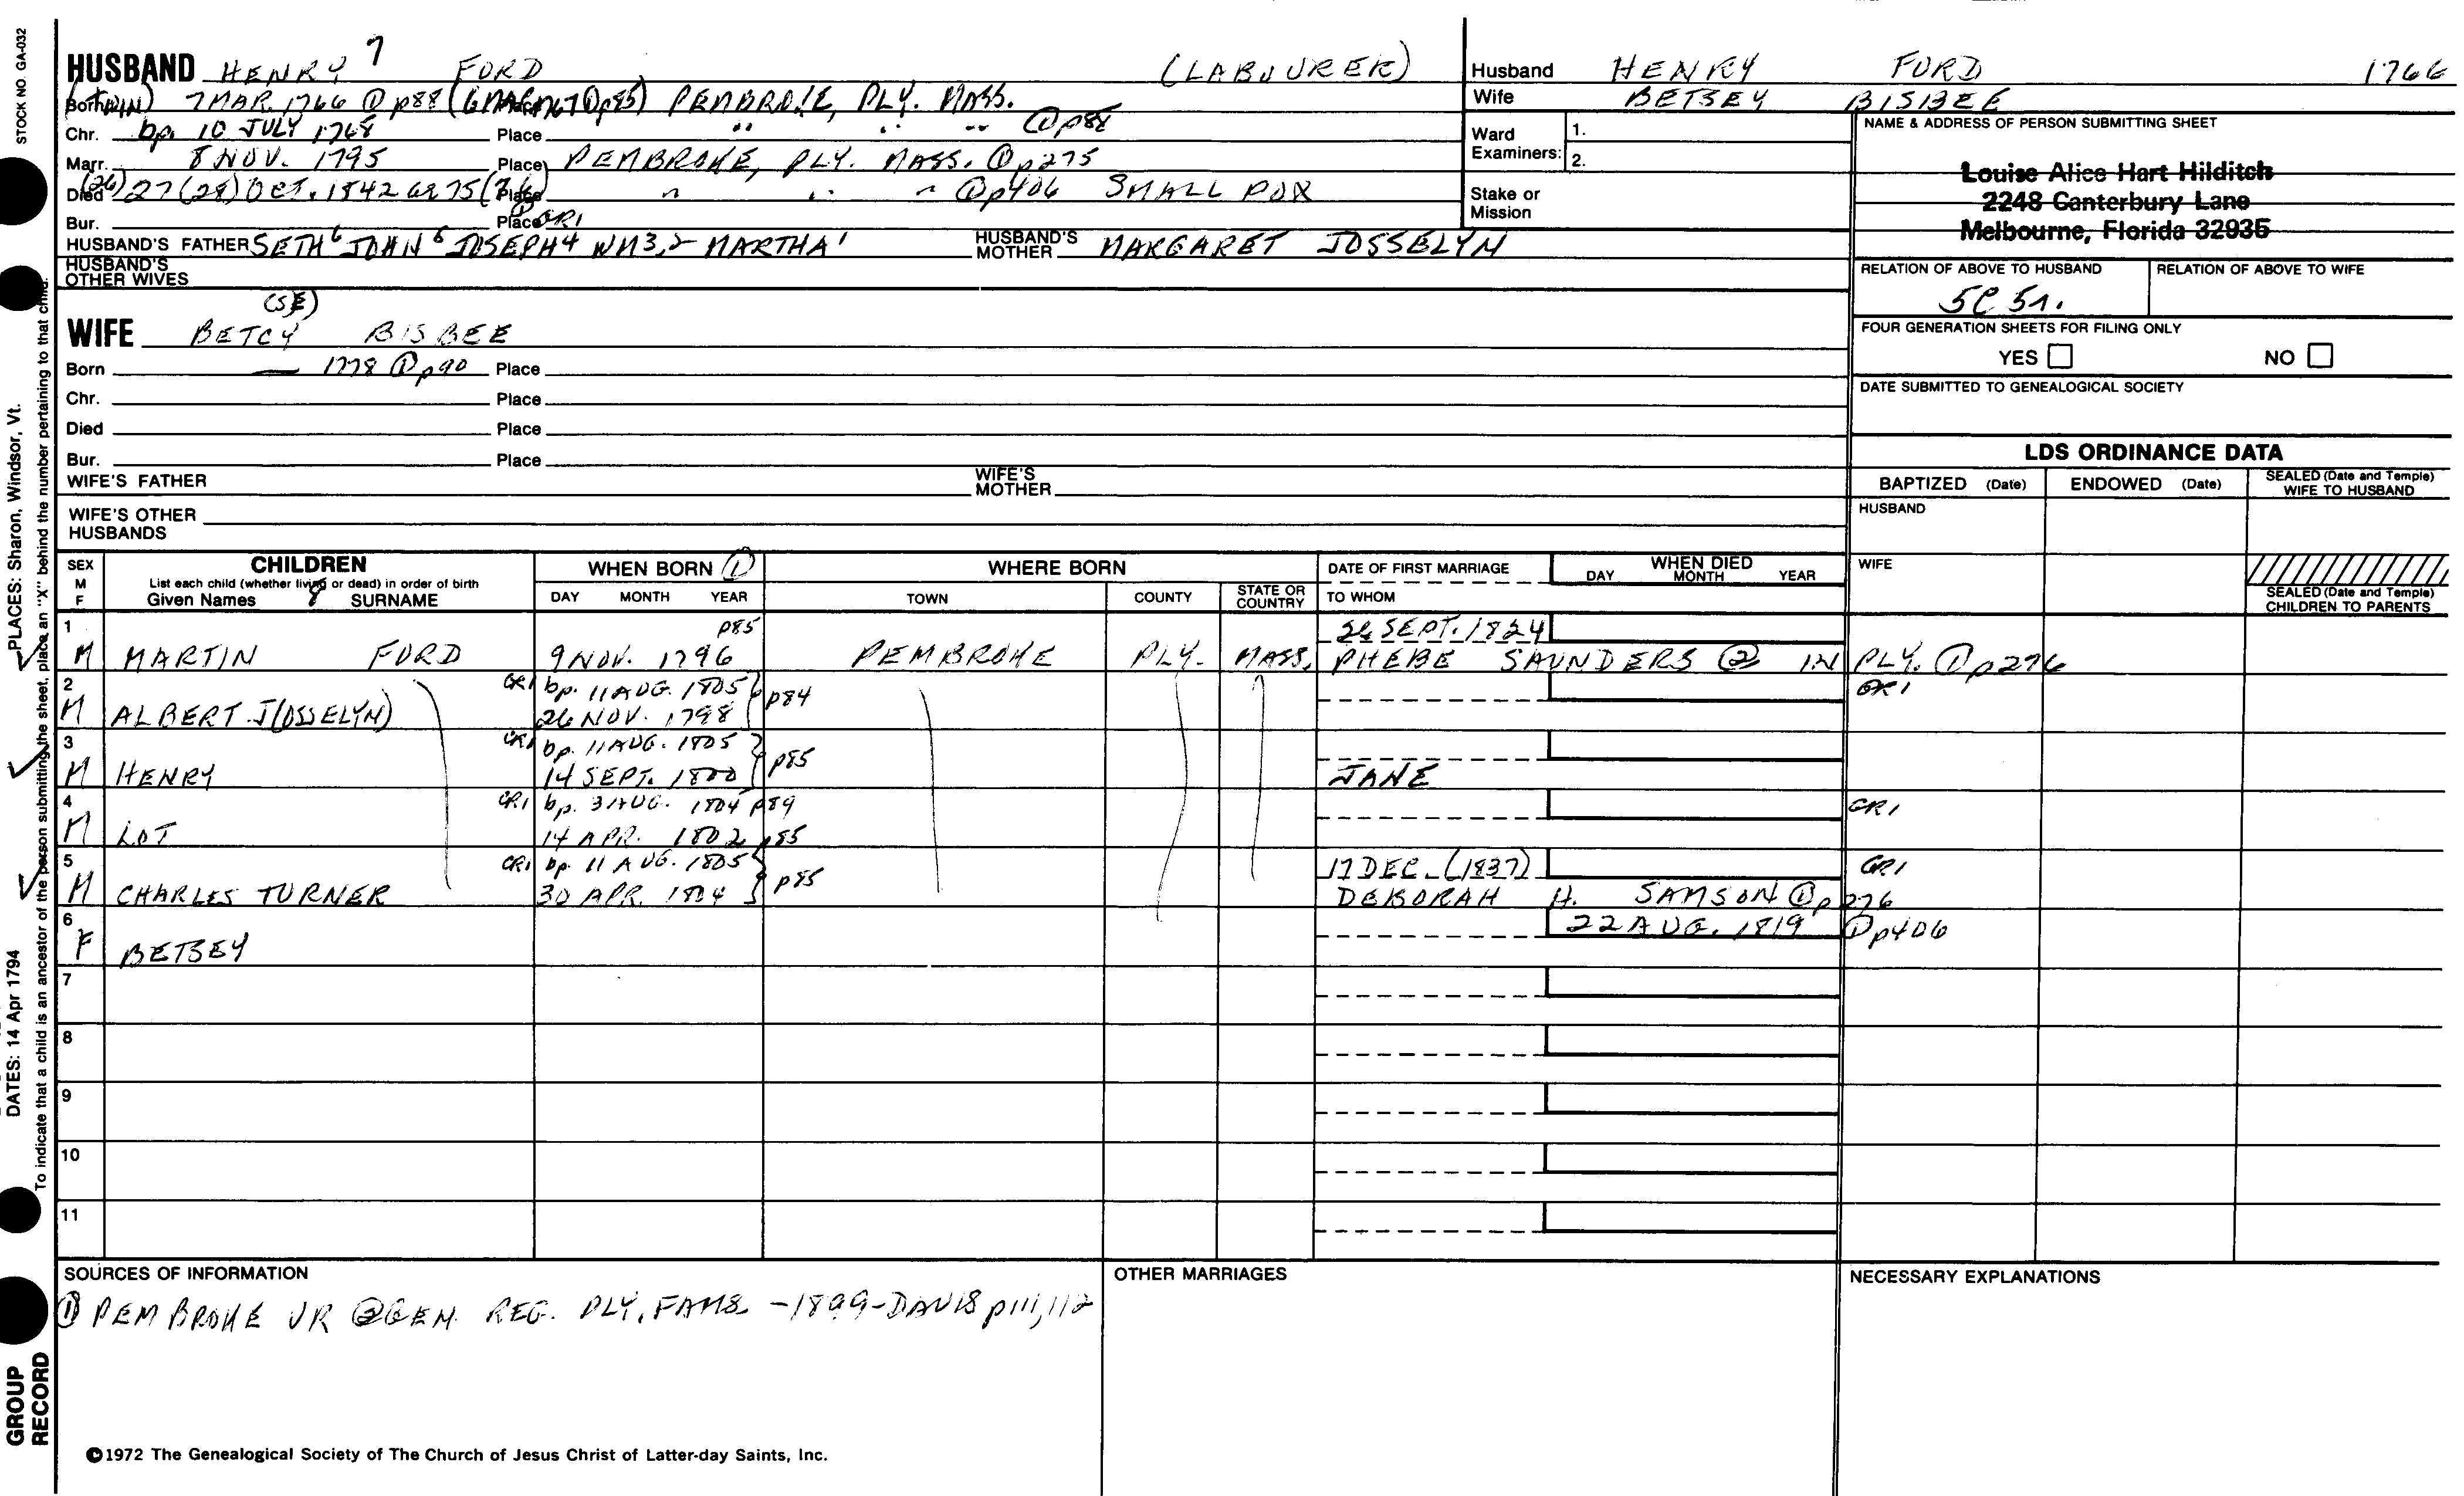 STOCK NO. GA-032
HUSBAND HENRY 7 FORD (LABOURER)
Born (TWIN) 7 MAR. 1766 ① p88 ( p85) PEMBROKE, PLY. MASS.
Chr. bp. 10 JULY 1768 Place " " " ① p88
Marr. 8 NOV. 1795 Place PEMBROKE, PLY. MASS. ① p275
Died (26) 27 (28) OCT. 1842 75 Place " " " ① p406 SMALL POX
Bur. Place ① GR1
HUSBAND'S FATHER SETH 6 JOHN JOSEPH 4 WM 3,2 MARTHA 1 HUSBAND'S MOTHER MARGARET JOSSELYN
HUSBAND'S OTHER WIVES
(SE)
WIFE BETCY BISBEE
Born — 1778 ① p90 Place
Chr. Place
Died Place
Bur. Place
WIFE'S FATHER WIFE'S MOTHER
WIFE'S OTHER HUSBANDS
Husband HENRY FORD 1766
Wife BETSEY BISBEE
Ward Examiners: 1.
2.
Stake or Mission
NAME & ADDRESS OF PERSON SUBMITTING SHEET
Louise Alice Hart Hilditch
2248 Canterbury Lane
Melbourne, Florida 32935
RELATION OF ABOVE TO HUSBAND RELATION OF ABOVE TO WIFE
5C 5r.
FOUR GENERATION SHEETS FOR FILING ONLY
YES NO
DATE SUBMITTED TO GENEALOGICAL SOCIETY
LDS ORDINANCE DATA
BAPTIZED (Date) ENDOWED (Date) SEALED (Date and Temple) WIFE TO HUSBAND
HUSBAND
WIFE
SEALED (Date and Temple) CHILDREN TO PARENTS
SEX M F
CHILDREN
List each child (whether living or dead) in order of birth
Given Names 8 SURNAME
WHEN BORN ①
DAY MONTH YEAR
WHERE BORN
TOWN COUNTY STATE OR COUNTRY
DATE OF FIRST MARRIAGE
TO WHOM
WHEN DIED
DAY MONTH YEAR
1 p85 26 SEPT. 1824
M MARTIN FORD 9 NOV. 1796 PEMBROKE PLY. MASS. PHEBE SAUNDERS ② IN PLY. ① p276
2 CR1 bp. 11 AUG. 1805 p84 CR1
M ALBERT J(OSSELYN) 26 NOV. 1798
3 CR1 bp. 11 AUG. 1805 p85
M HENRY 14 SEPT. 1800 JANE
4 CR1 bp. 3 AUG. 1804 p89 CR1
M LOT 14 APR. 1802 p85
5 CR1 bp. 11 AUG. 1805 p85 17 DEC. (1837) CR1
M CHARLES TURNER 30 APR. 1804 DEBORAH H. SAMSON ① p276
6 22 AUG. 1819 ① p406
F BETSEY
7
8
9
10
11
SOURCES OF INFORMATION
① PEMBROKE VR ② GEN. REG. PLY. FAMS. -1899-DAVIS p111,112
OTHER MARRIAGES
NECESSARY EXPLANATIONS
©1972 The Genealogical Society of The Church of Jesus Christ of Latter-day Saints, Inc.
PLACES: Sharon, Windsor, Vt.
DATES: 14 Apr 1794
To indicate that a child is an ancestor of the person submitting the sheet, place an "X" behind the number pertaining to that child.
GROUP RECORD